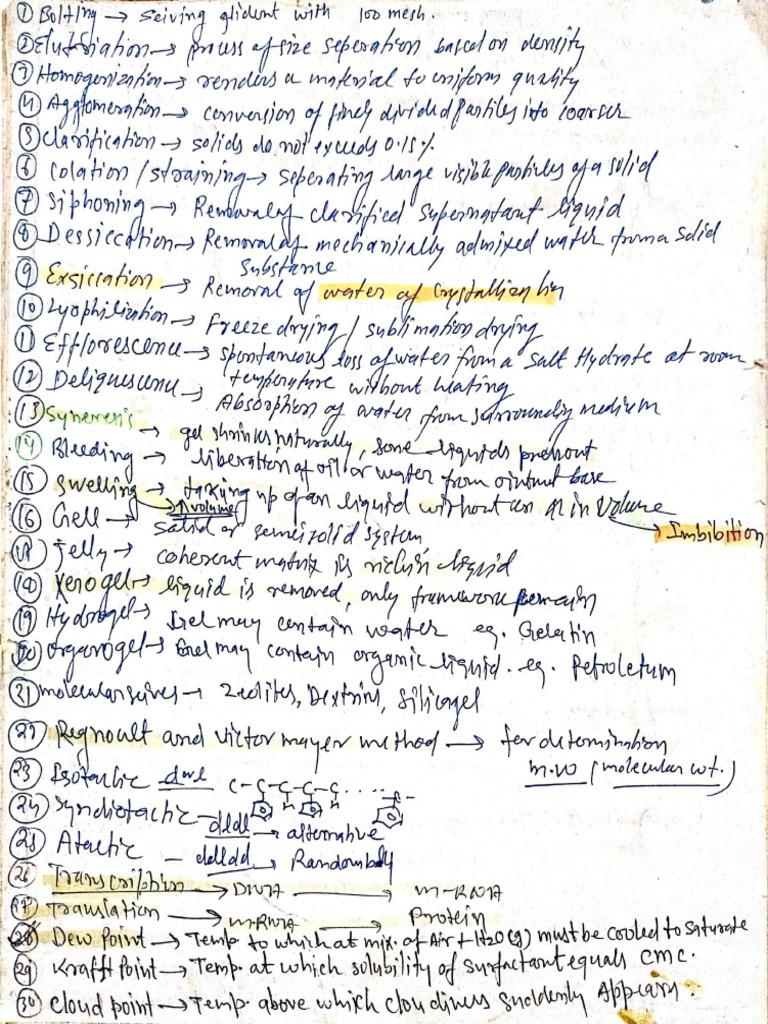 ① Bolting → Seiving glident with 100 mesh.
② Elutriation → process of size seperation based on density
③ Homogenization → renders a material to uniform quality
④ Agglomeration → conversion of finely divided partiles into coarser
⑤ clarification → solids do not exceeds 0.15%
⑥ colation / straining → seperating large visible particles of a solid
⑦ Siphoning → Removal of clarified supernatant liquid
⑧ Dessiccation → Removal of mechanically admixed water from a solid
substance
⑨ Exsiccation → Removal of water of crystallization
⑩ Lyophilization → Freeze drying / sublimation drying
⑪ Efflorescence → spontaneous loss of water from a salt Hydrate at room
temperature without heating
⑫ Deliquescence → Absorption of water from surrounding medium
⑬ Syneresis → gel shrinks naturally, some liquids press out
⑭ Bleeding → liberation of oil or water from ointment base
⑮ Swelling → taking up of an liquid without an ↑ in volume
↑ volume → Imbibition
⑯ Gell → solid or semisolid system
⑰ Jelly → coherent matrix is rich in liquid
⑱ Xerogel → liquid is removed, only framework remain
⑲ Hydrogel → Gel may contain water eg. Gelatin
⑳ Organogel → Gel may contain organic liquid. eg. Petroletum
㉑ molecular seives → Zeolites, Dextrins, Silicagel
㉒ Regnoult and victor mayer method → for determination
m.w (molecular wt.)
㉓ Isotactic dddd C-C-C-C-C ....
㉔ Syndiotactic - dldl → alternative
㉕ Atactic - ddldd → Randombly
㉖ Transcription → DNA → m-RNA
㉗ Translation → m-RNA → Protein
㉘ Dew Point → Temp. to which at mix. of Air + H2O(g) must be cooled to saturate
㉙ Krafft Point → Temp. at which solubility of surfactant equals CMC.
㉚ Cloud point → Temp. above which cloudiness suddenly Appears.